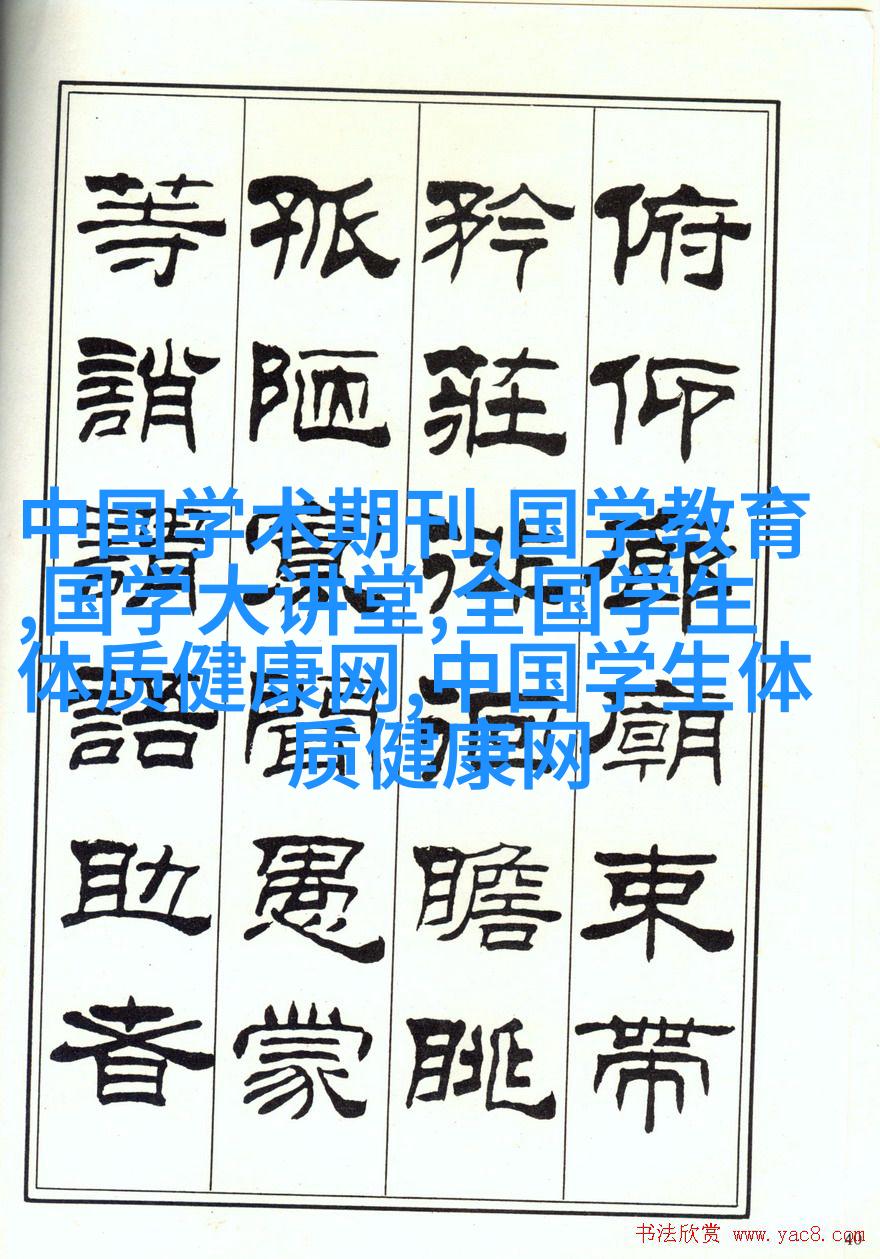 俯仰廊廟束帶
矜莊徘徊瞻眺
孤陋寡聞愚蒙
等誚謂語助者
中国学术期刊,国学教育
,国学大讲堂,全国学生
体质健康网,中国学生体
质健康网
书法欣赏 www.yac8.com
40